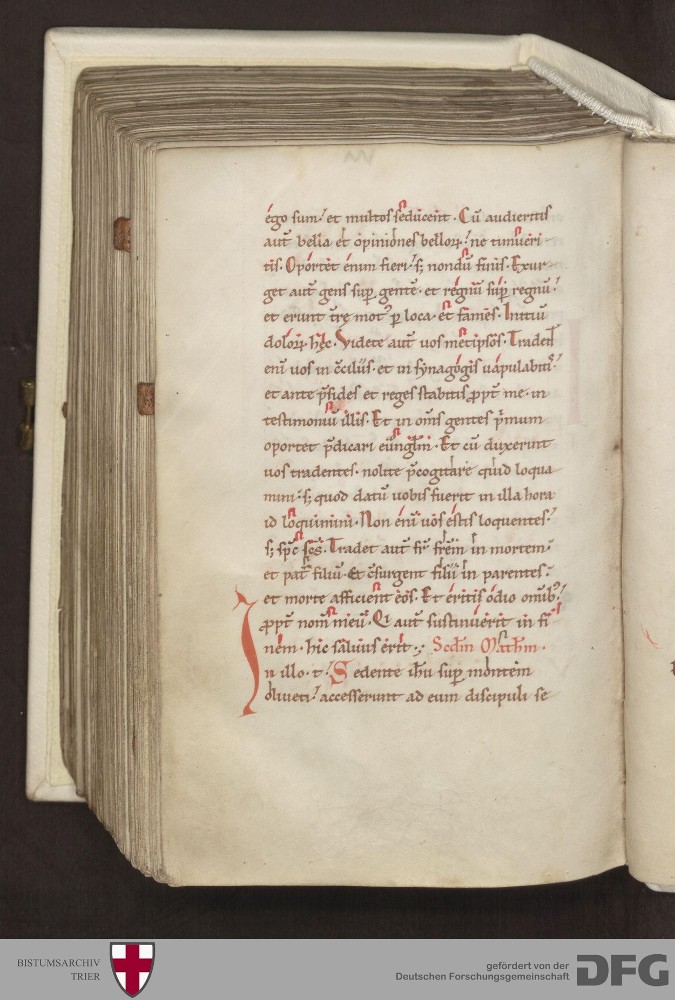 ego sum. et multos seducent. Cū audieritis
aut̄ bella et opiniones belloꝝ. ne timueri
tis. Oportet enim fieri. sꝫ nondū finis. Exur
get aut̄ gens suꝑ gentē. et regnū suꝑ regnū.
et erunt t̄rę motꝰ ꝑ loca. et fames. Initiū
doloꝝ hęc. Videte aut̄ uos metipsos. Tradent
enī uos in cc̄iliis. et in synagogis uapulabitis.
et ante p̄sides et reges stabitis ꝓpt̄ me. in
testimoniū illis. Et in om̄s gentes p̄mum
oportet p̄dicari euuᷓnglm̄. Et cū duxerint
uos tradentes. nolite p̄cogitare quid loqua
mini. sꝫ quod datū uobis fuerit in illa hora
id loquimini. Non enī uos estis loquentes.
sꝫ sp̄c sc̄s. Tradet aut̄ fr̄ fr̄em in mortem.
et pat̄ filiū. Et c̄surgent filii in parentes.
et morte afficient eos. Et eritis odio om̄ibꝰ
ꝓpt̄ nom̄ meū. Qi aut̄ sustinuerit in fi
nem. hic saluus erit. Scdm̄ Matthm̄.
In illo. t̄. Sedente ihu suꝑ montem
oliueti. accesserunt ad eum discipuli se
BISTUMSARCHIV
TRIER
gefördert von der
Deutschen Forschungsgemeinschaft
DFG